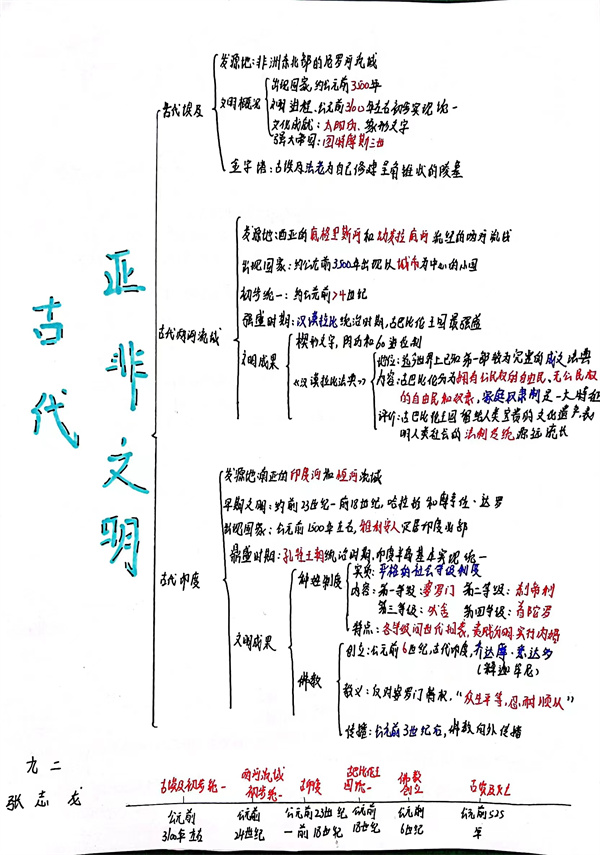 古代
亚非文明
古代埃及
发源地：非洲东北部的尼罗河流域
文明概况
出现国家：约公元前3500年
文明进程：公元前3100年左右初步实现统一
文化成就：太阳历、象形文字
强大帝国：图特摩斯三世
金字塔：古埃及法老为自己修建呈角锥状的陵墓
古代两河流域
发源地：西亚的底格里斯河和幼发拉底河流经的两河流域
出现国家：约公元前3500年出现以城市为中心的小国
初步统一：约公元前24世纪
强盛时期：汉谟拉比统治时期，古巴比伦王国最强盛
文明成果
楔形文字，阴历和60进位制
《汉谟拉比法典》
地位：迄今世界上已知第一部较为完整的成文法典
内容：古巴比伦分为拥有公民权的自由民、无公民权
的自由民和奴隶，家庭奴隶制是一大特征
评价：古巴比伦王国留给人类宝贵的文化遗产，表
明人类社会的法制传统源远流长
古代印度
发源地：南亚的印度河和恒河流域
早期文明：约前23世纪—前18世纪，哈拉帕和摩亨佐·达罗
出现国家：公元前1500年左右，雅利安人
鼎盛时期：孔雀王朝统治时期，印度半岛基本实现统一
文明成果
种姓制度
实质：严格的社会等级制度
内容：第一等级：婆罗门 第二等级：刹帝利
第三等级：吠舍 第四等级：首陀罗
特点：各等级间世代相袭，贵贱分明，实行内婚
佛教
创立：公元前6世纪，古代印度，乔达摩·悉达多
（释迦牟尼）
教义：反对婆罗门特权，“众生平等，忍耐顺从”
传播：公元前3世纪后，佛教向外传播
九二
张志龙
古埃及初步统一
两河流域
初步统一
古印度
古巴比伦王
国统一
佛教
创立
古埃及灭亡
公元前
3100年左右
公元前
24世纪
公元前23世纪
—前18世纪
公元前
18世纪
公元前
6世纪
公元前525
年